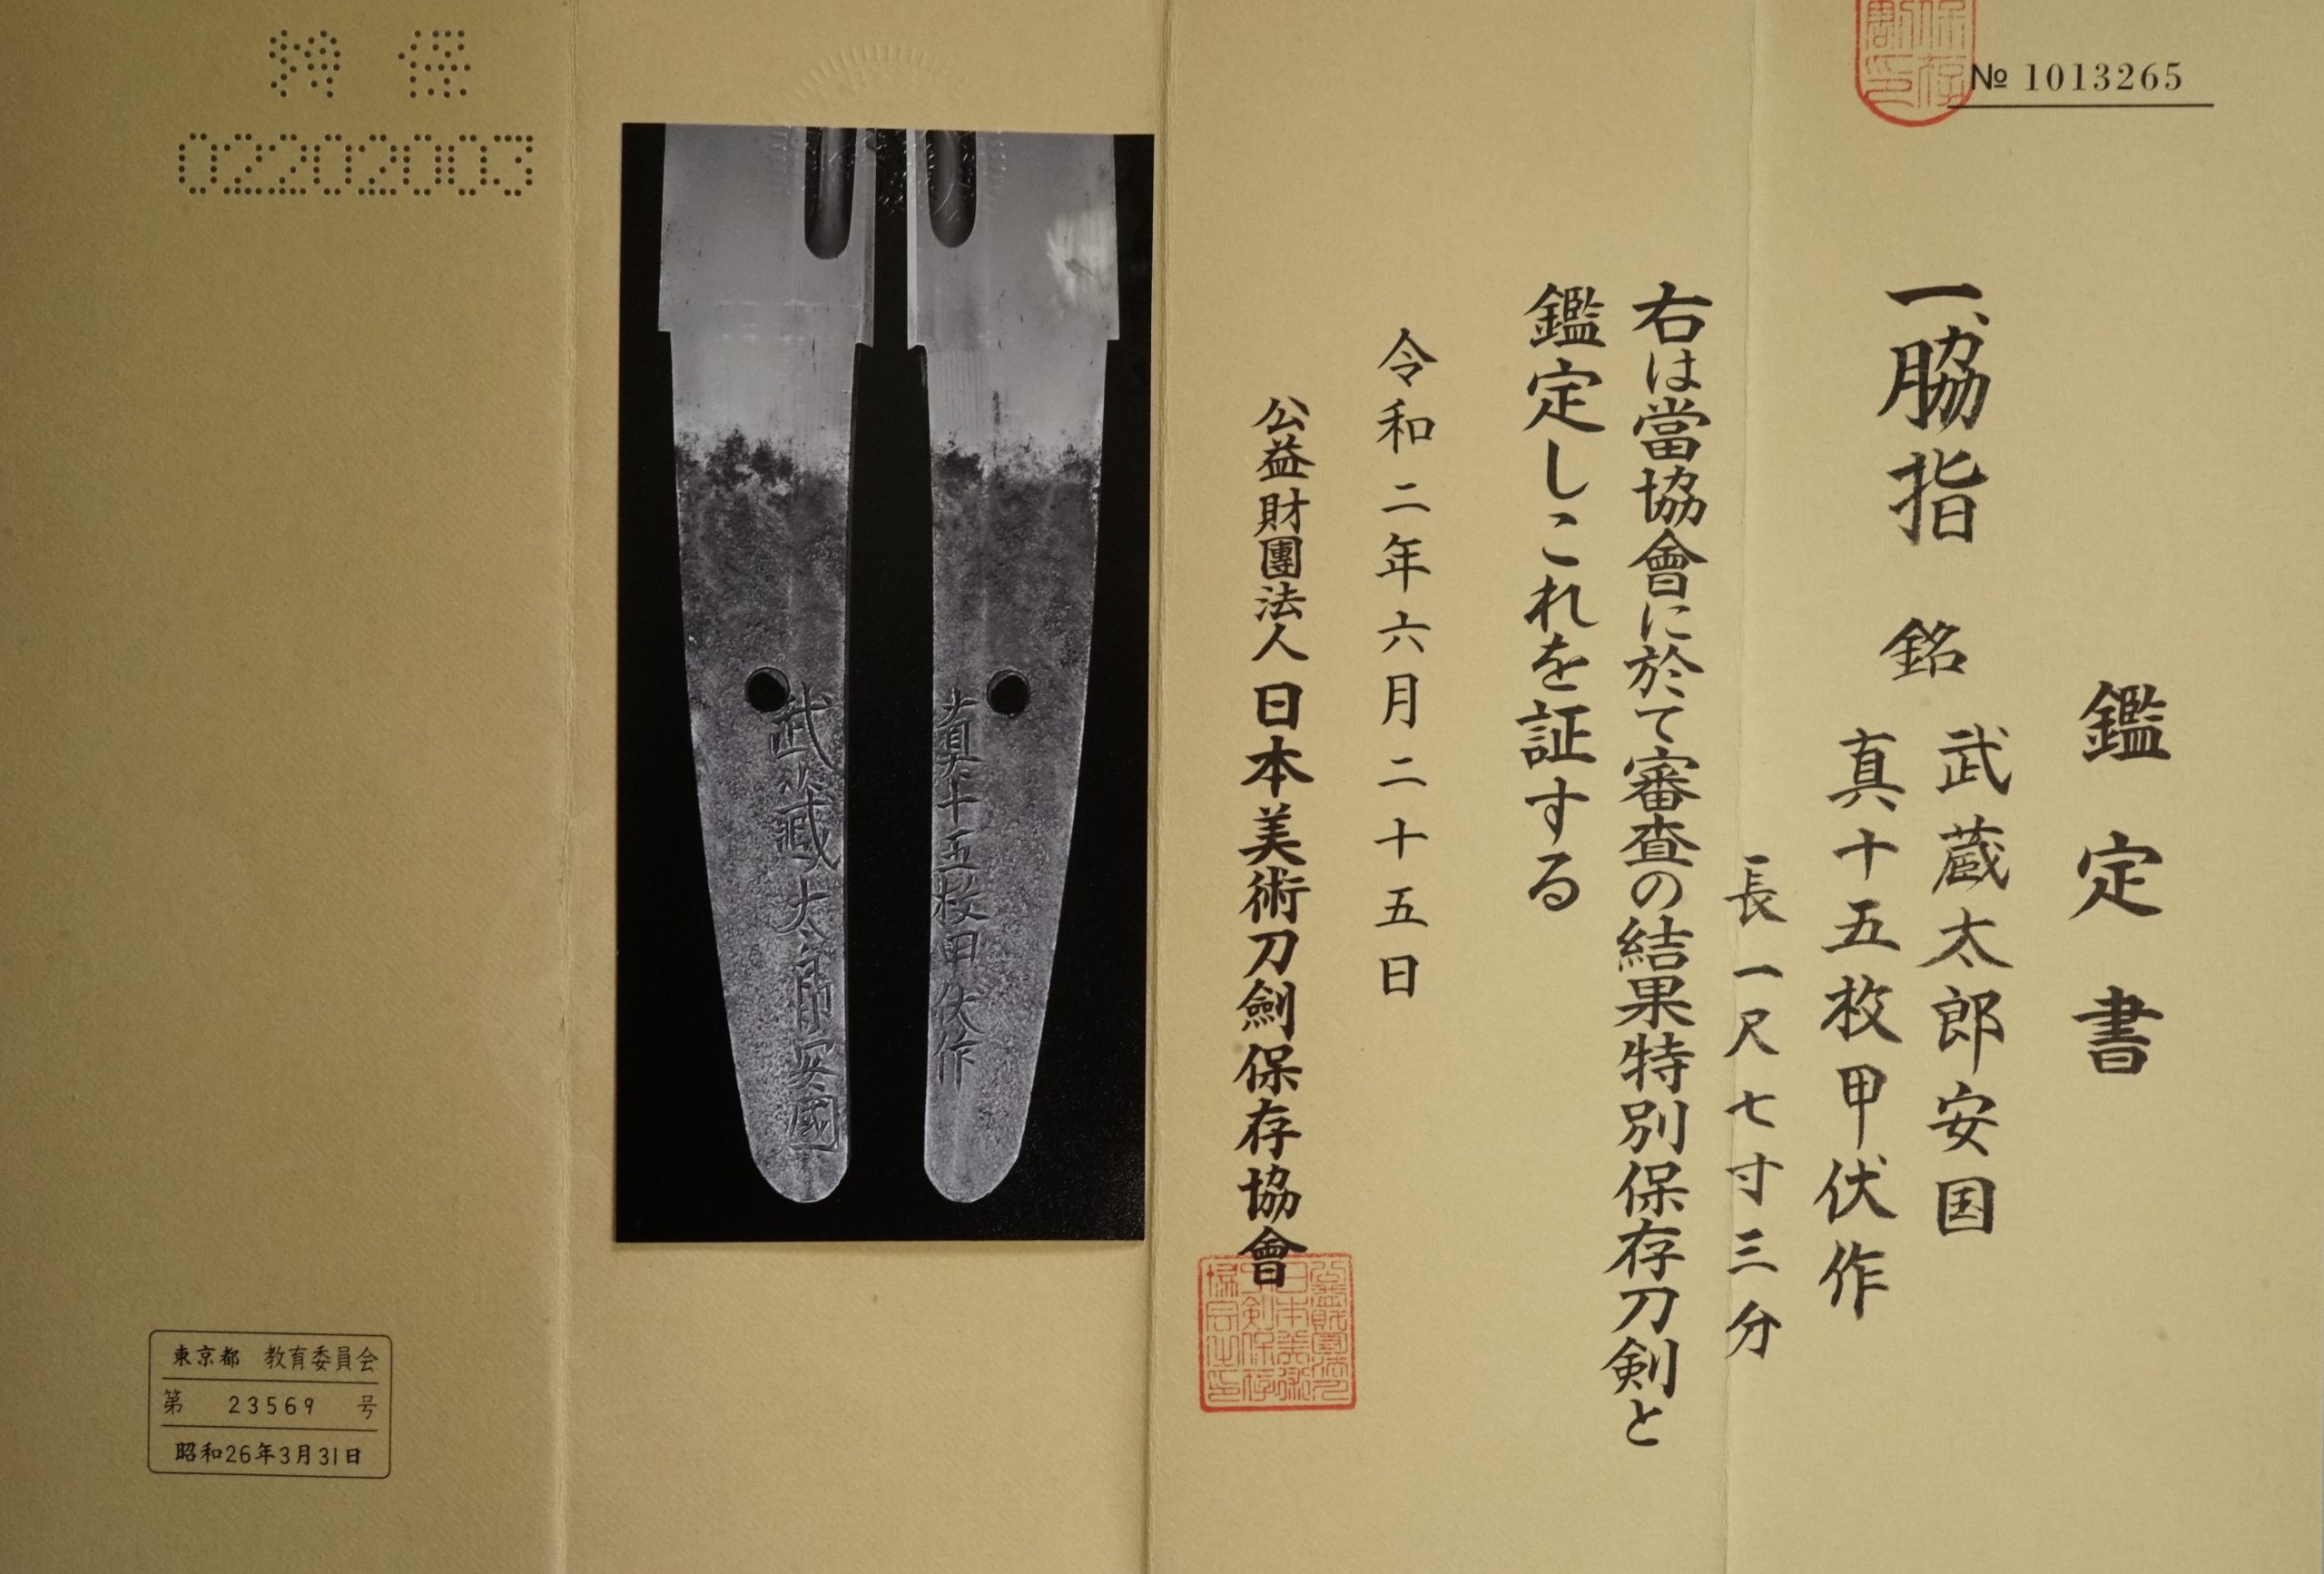 № 1013265
鑑定書
一、脇指 銘 武蔵太郎安国
真十五枚甲伏作
長一尺七寸三分
右は當協會に於て審査の結果特別保存刀剣と
鑑定しこれを証する
令和二年六月二十五日
公益財團法人日本美術刀劍保存協會
武蔵太郎安國
真十五枚甲伏作
特保
02202003
東京都 教育委員会
第 23569 号
昭和26年3月31日